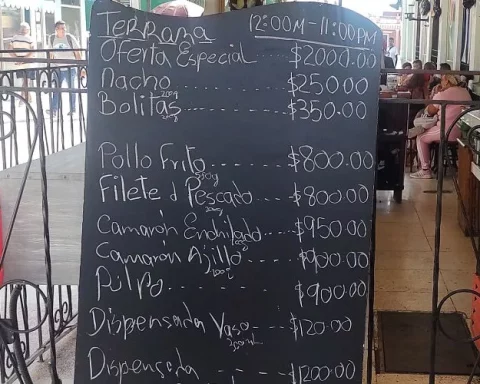 Terraza 12:00M-11:00PM
Oferta Especial $2000.00
Nacho $250.00
Bolitas 200g $350.00
Pollo Frito $800.00
Filete d Pescado $800.00
Camarón Enchilado $950.00
Camarón Ajillo $900.00
Pulpo $900.00
Dispensada Vaso $120.00
Dispensada $1200.00